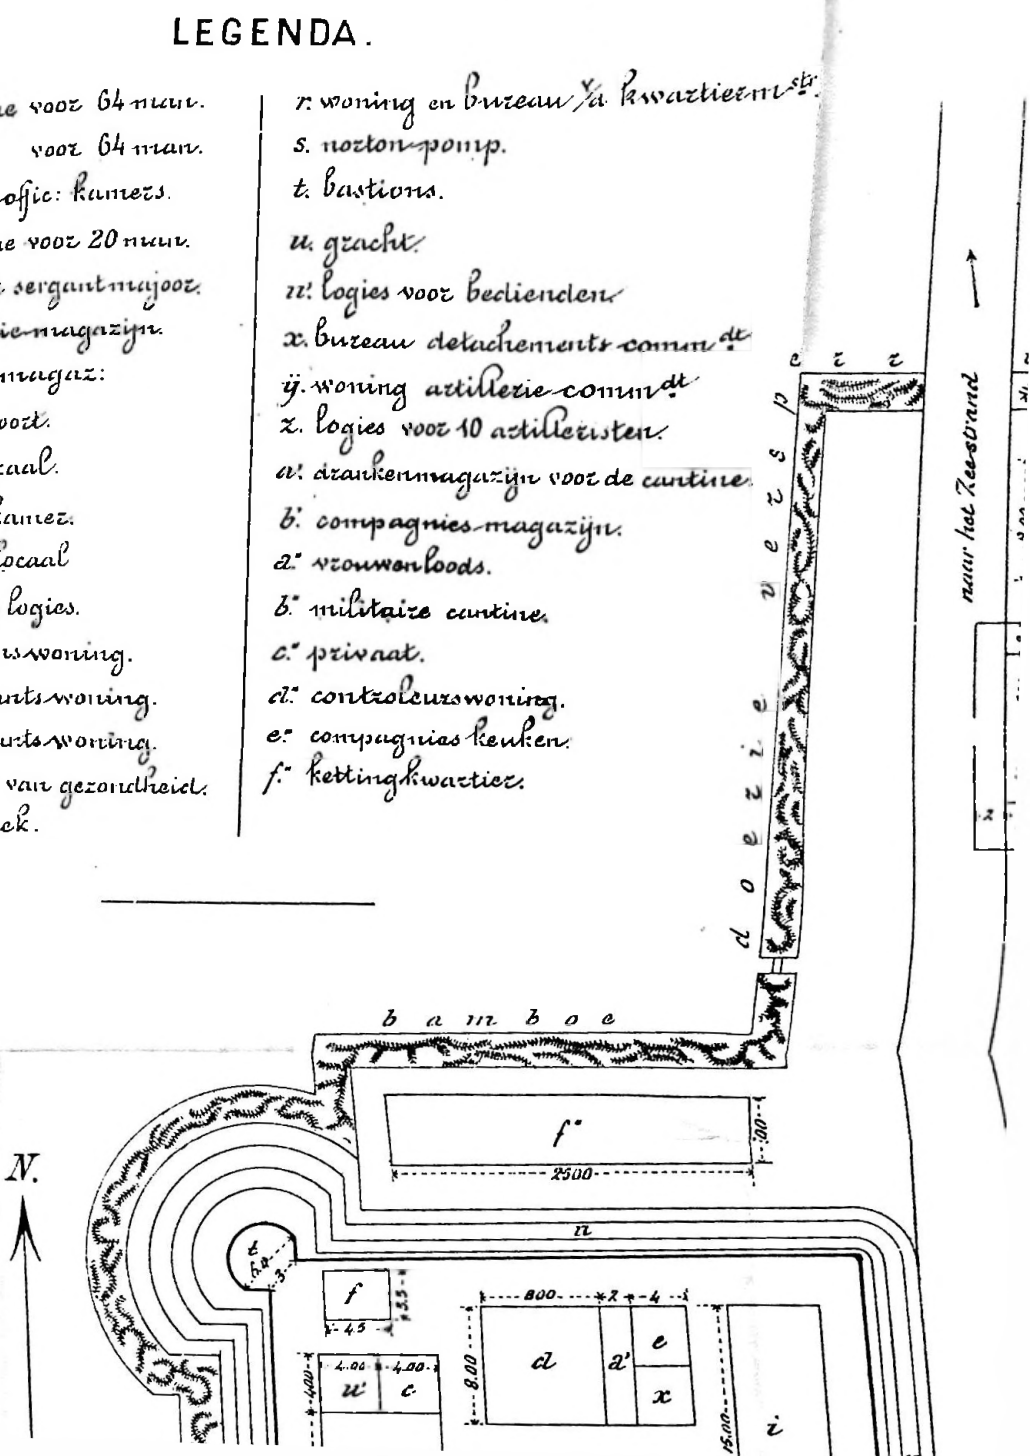 LEGENDA.
voor 64 man.
voor 64 man.
offic: kamers.
voor 20 man.
sergantmajoor.
magazijn.
magaz:
kamer.
locaal
logies.
woning.
woning.
woning.
van gezondheid.
r. woning en bureau v/d kwartierm str.
s. norton-pomp.
t. bastions.
u. gracht.
u'. logies voor bedienden
x. bureau detachements-comm dt
ÿ. woning artillerie-comm dt
z. logies voor 10 artilleristen.
a'. drankenmagazijn voor de cantine.
b'. compagnies-magazijn.
a." vrouwenloods.
b." militaire cantine.
c." privaat.
d." controleurswoning.
e." compagnies keuken.
f." kettingkwartier.
doezie versperr
naar het Zeestrand
z
bamboe
f"
2500
N.
u
t
6.0
3
f
3.5
4.5
4.00
4.00
400
u'
c
800
2
4
8.00
d
a'
e
x
15.00
i